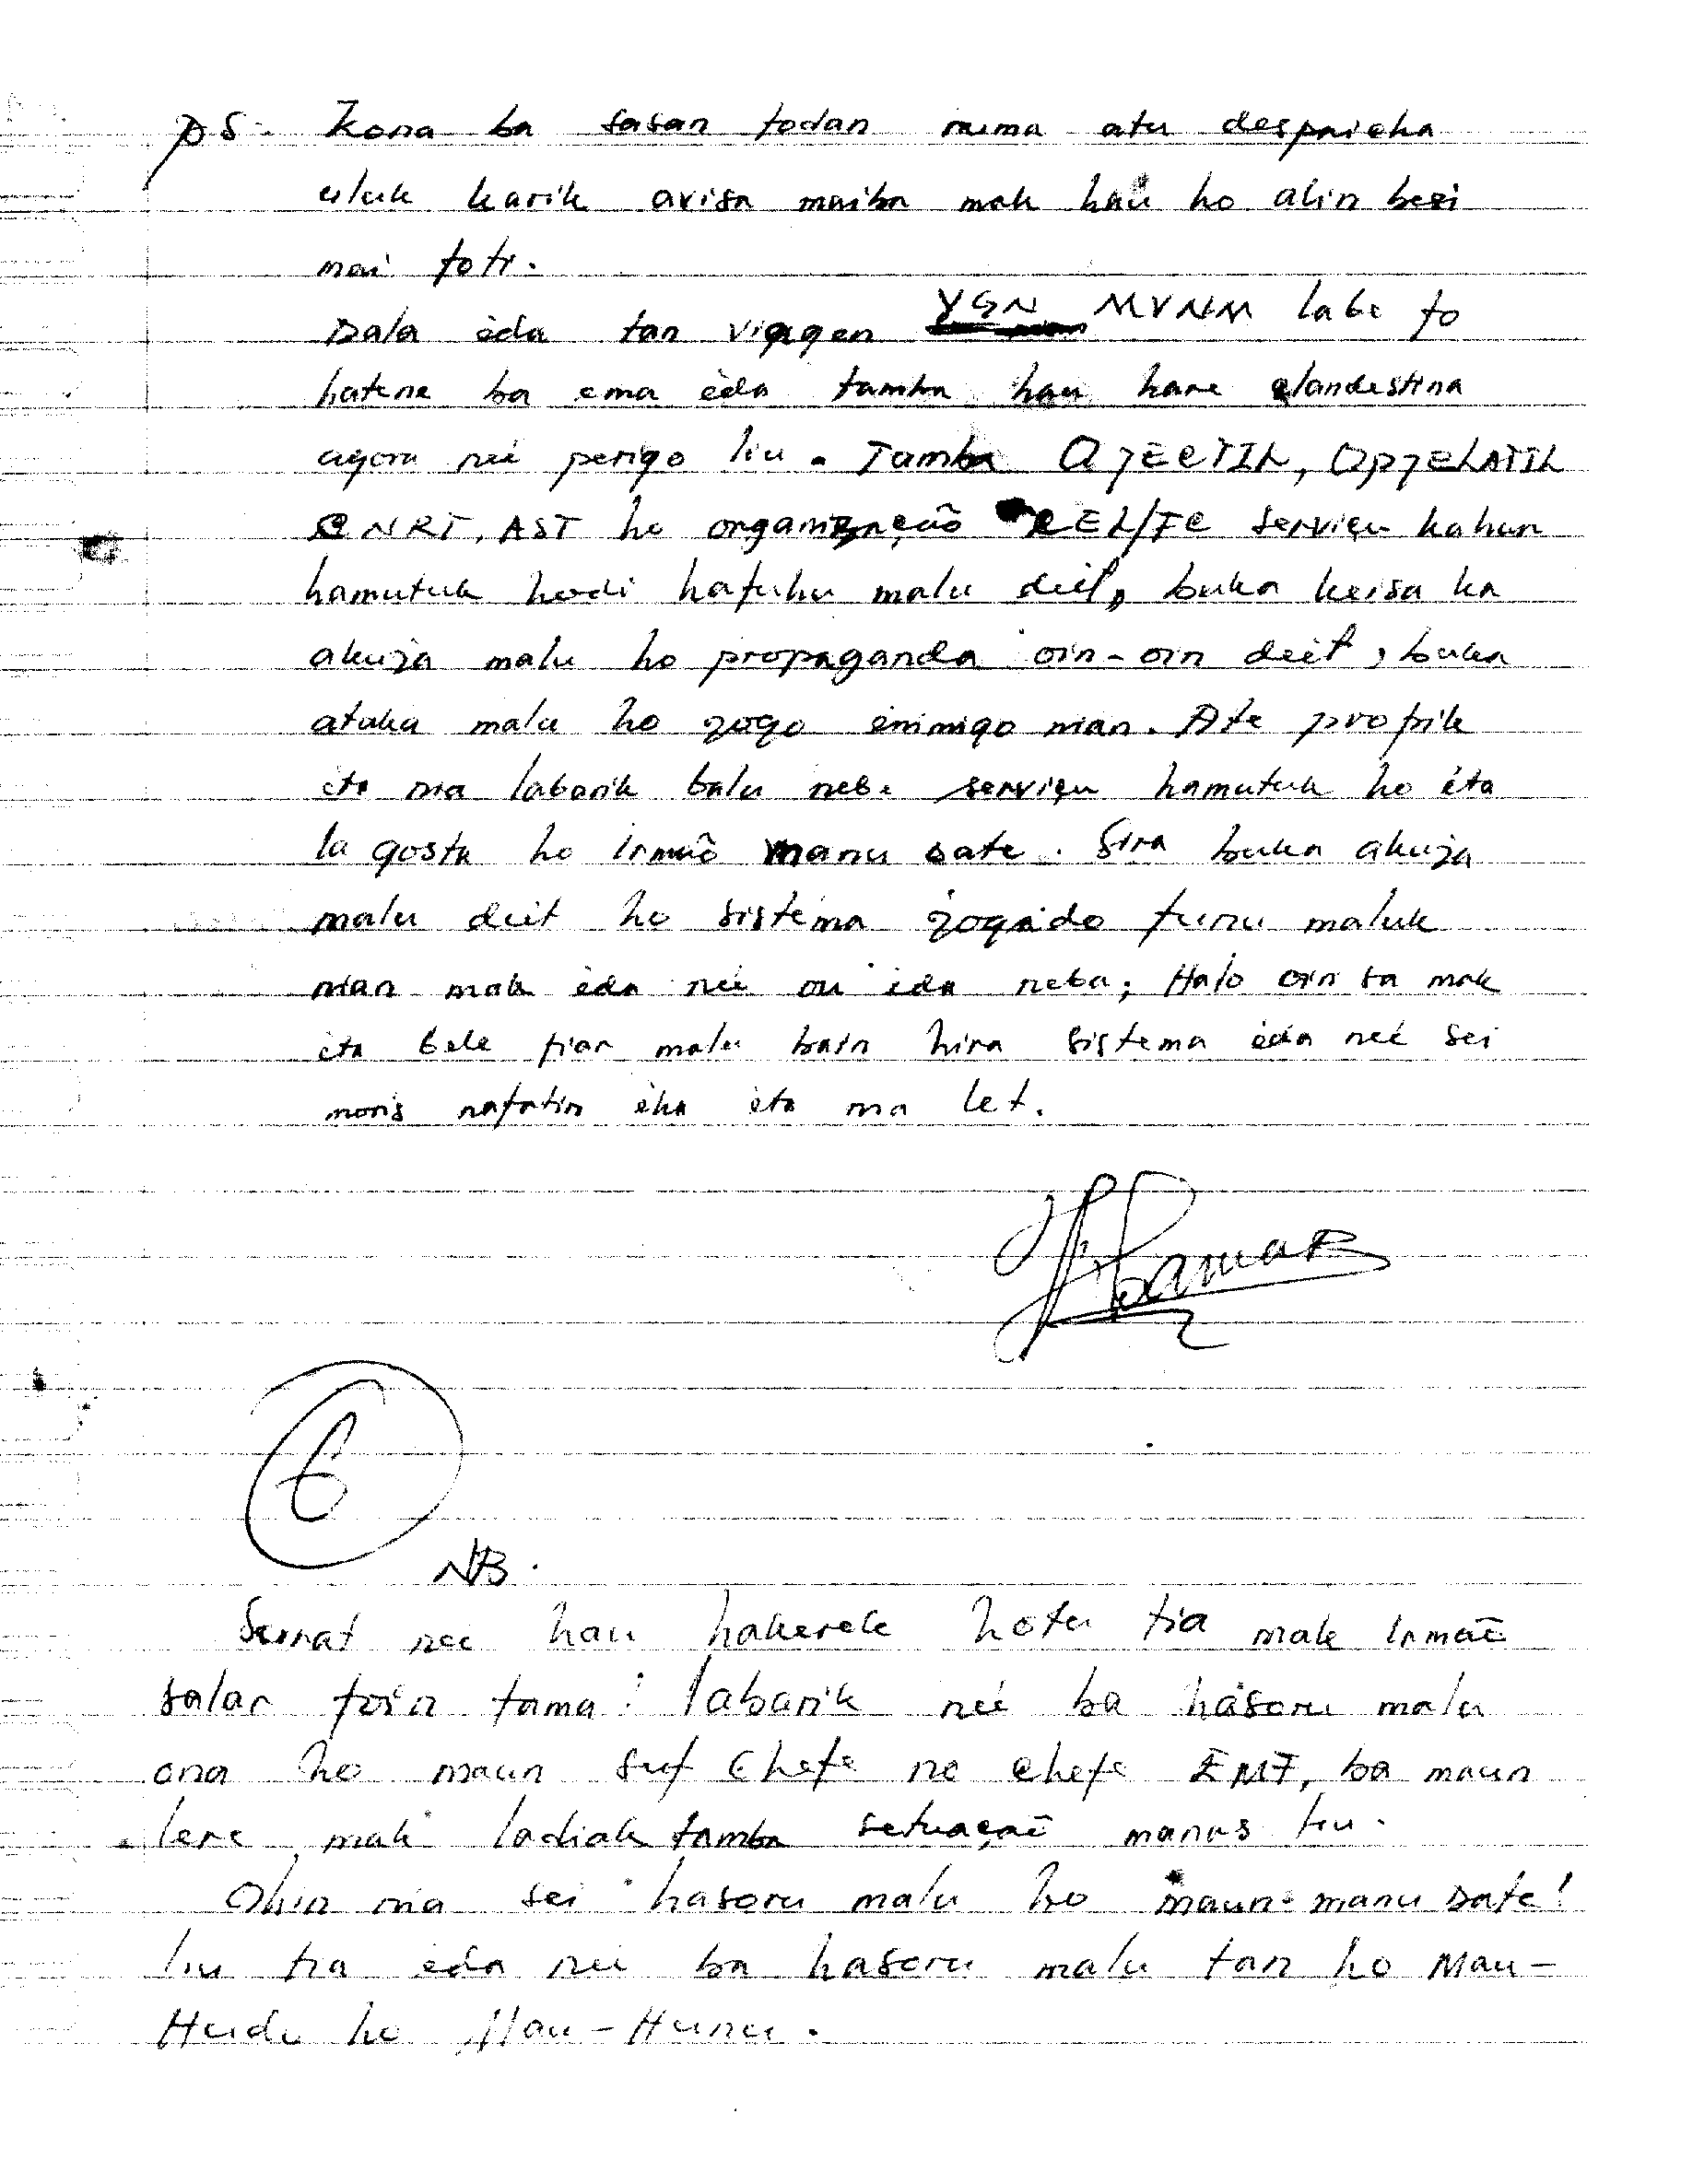 PS. Kona ba sasan todan ruma atu despaicha
uluk karik avisa maiba mak hau ho alin besi
mai foti.
Dala èda tan viagen YGN MVNM labe fo
hatene ba ema èda tamba hau hare clandestina
agora neé perigo liu. Tamba OJECTIL, OPJELATIL
CNRT, AST ho organização REL/FC serviçu kahur
hamutuk hodi hafuhu malu deit, buka keisa ka
akuza malu ho propaganda oin-oin deit, buka
ataka malu ho jogo enimigo nian. Ate propik
ita nia labarik balu nebe serviçu hamutuk ho éta
la gosta ho irmaõ manu date. Sira buka akuza
malu deit ho sistema jogado funu maluk
nian mak èda neé ou ida neba; Halo oin sa mak
ita bele fiar malu bain hira sistema èda neé sei
moris nafatin èha èta nia let.
6
NB.
Surat neé hau hakerek hotu tia mak Irmaõ
salar foin tama! labarik neé ba hasoru malu
ona ho maun suf Chefe no Chefe EMF, ba maun
lere mak ladiak tamba setuaçaõ manas liu.
Ohin nia sei hasoru malu ho maun manu Date!
liu tia èda neé ba hasoru malu tan ho Mau-
Hudu ho Mau-Hunu.